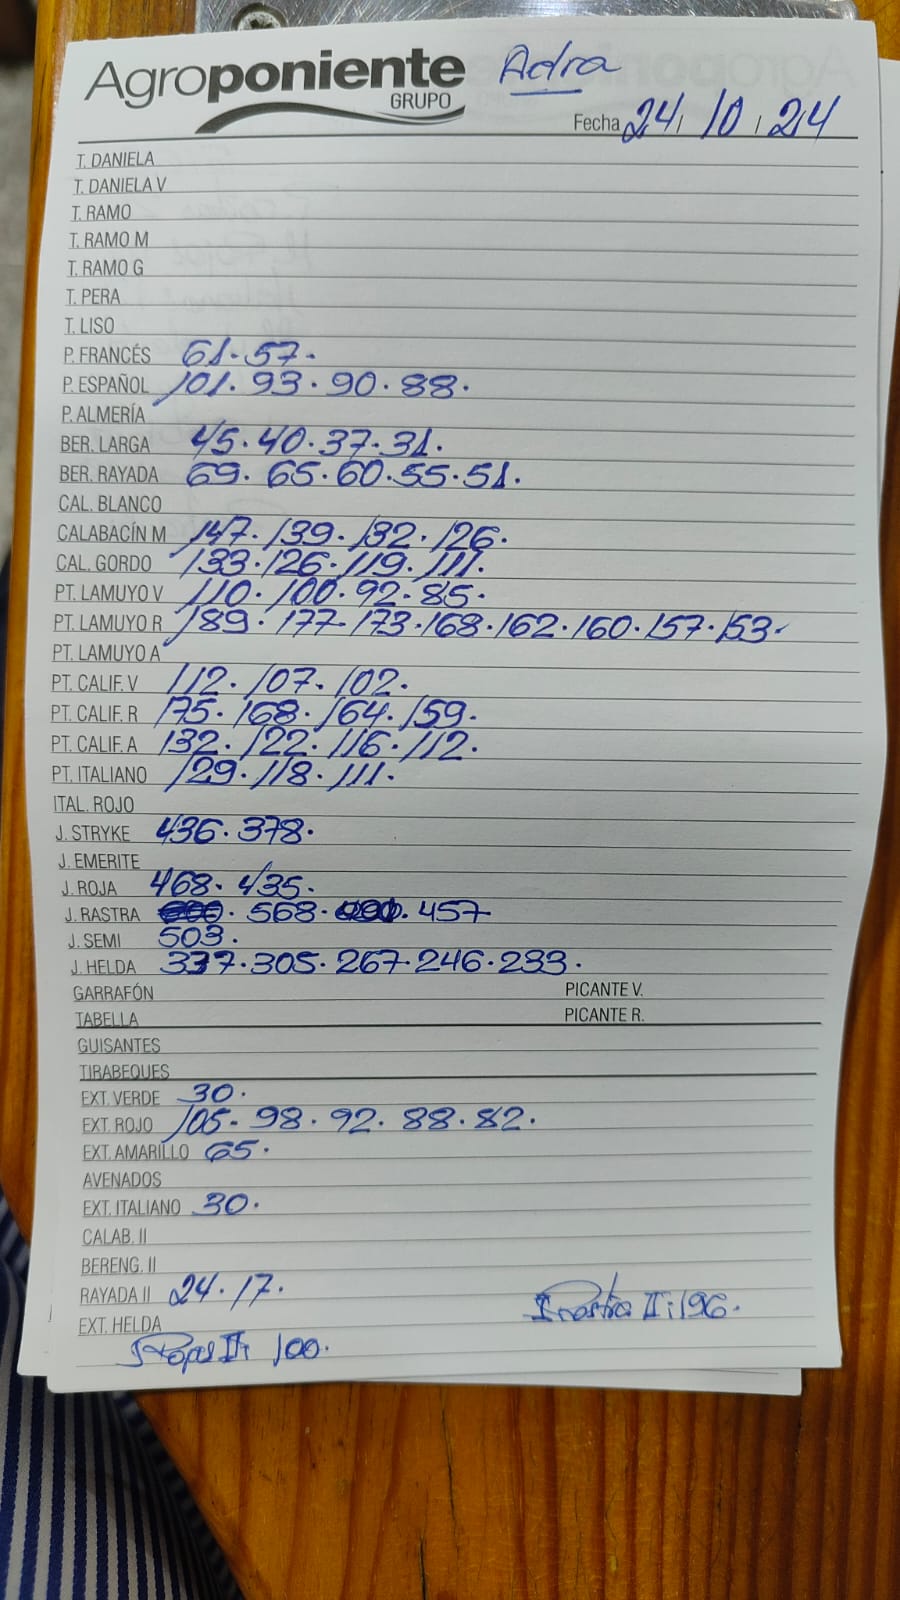 Agroponiente Adra
GRUPO
Fecha 24 / 10 / 24
T. DANIELA
T. DANIELA V
T. RAMO
T. RAMO M
T. RAMO G
T. PERA
T. LISO
P. FRANCÉS 61. 57.
P. ESPAÑOL 101. 93. 90. 88.
P. ALMERÍA
BER. LARGA 45. 40. 37. 31.
BER. RAYADA 69. 65. 60. 55. 51.
CAL. BLANCO
CALABACÍN M 147. 139. 132. 126.
CAL. GORDO 133. 126. 119. 111.
PT. LAMUYO V 110. 100. 92. 85.
PT. LAMUYO R 189. 177. 173. 168. 162. 160. 157. 153.
PT. LAMUYO A
PT. CALIF. V 112. 107. 102.
PT. CALIF. R 175. 168. 164. 159.
PT. CALIF. A 132. 122. 116. 112.
PT. ITALIANO 129. 118. 111.
ITAL. ROJO
J. STRYKE 436. 378.
J. EMERITE
J. ROJA 468. 435.
J. RASTRA 568. 457
J. SEMI 503.
J. HELDA 337. 305. 267. 246. 233.
GARRAFÓN PICANTE V.
TABELLA PICANTE R.
GUISANTES
TIRABEQUES
EXT. VERDE 30.
EXT. ROJO 105. 98. 92. 88. 82.
EXT. AMARILLO 65.
AVENADOS
EXT. ITALIANO 30.
CALAB. II
BERENG. II
RAYADA II 24. 17.
Rastra II: 196.
EXT. HELDA
II: 100.